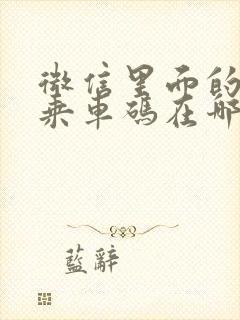 微信里面的
乘車碼在哪
藍辭